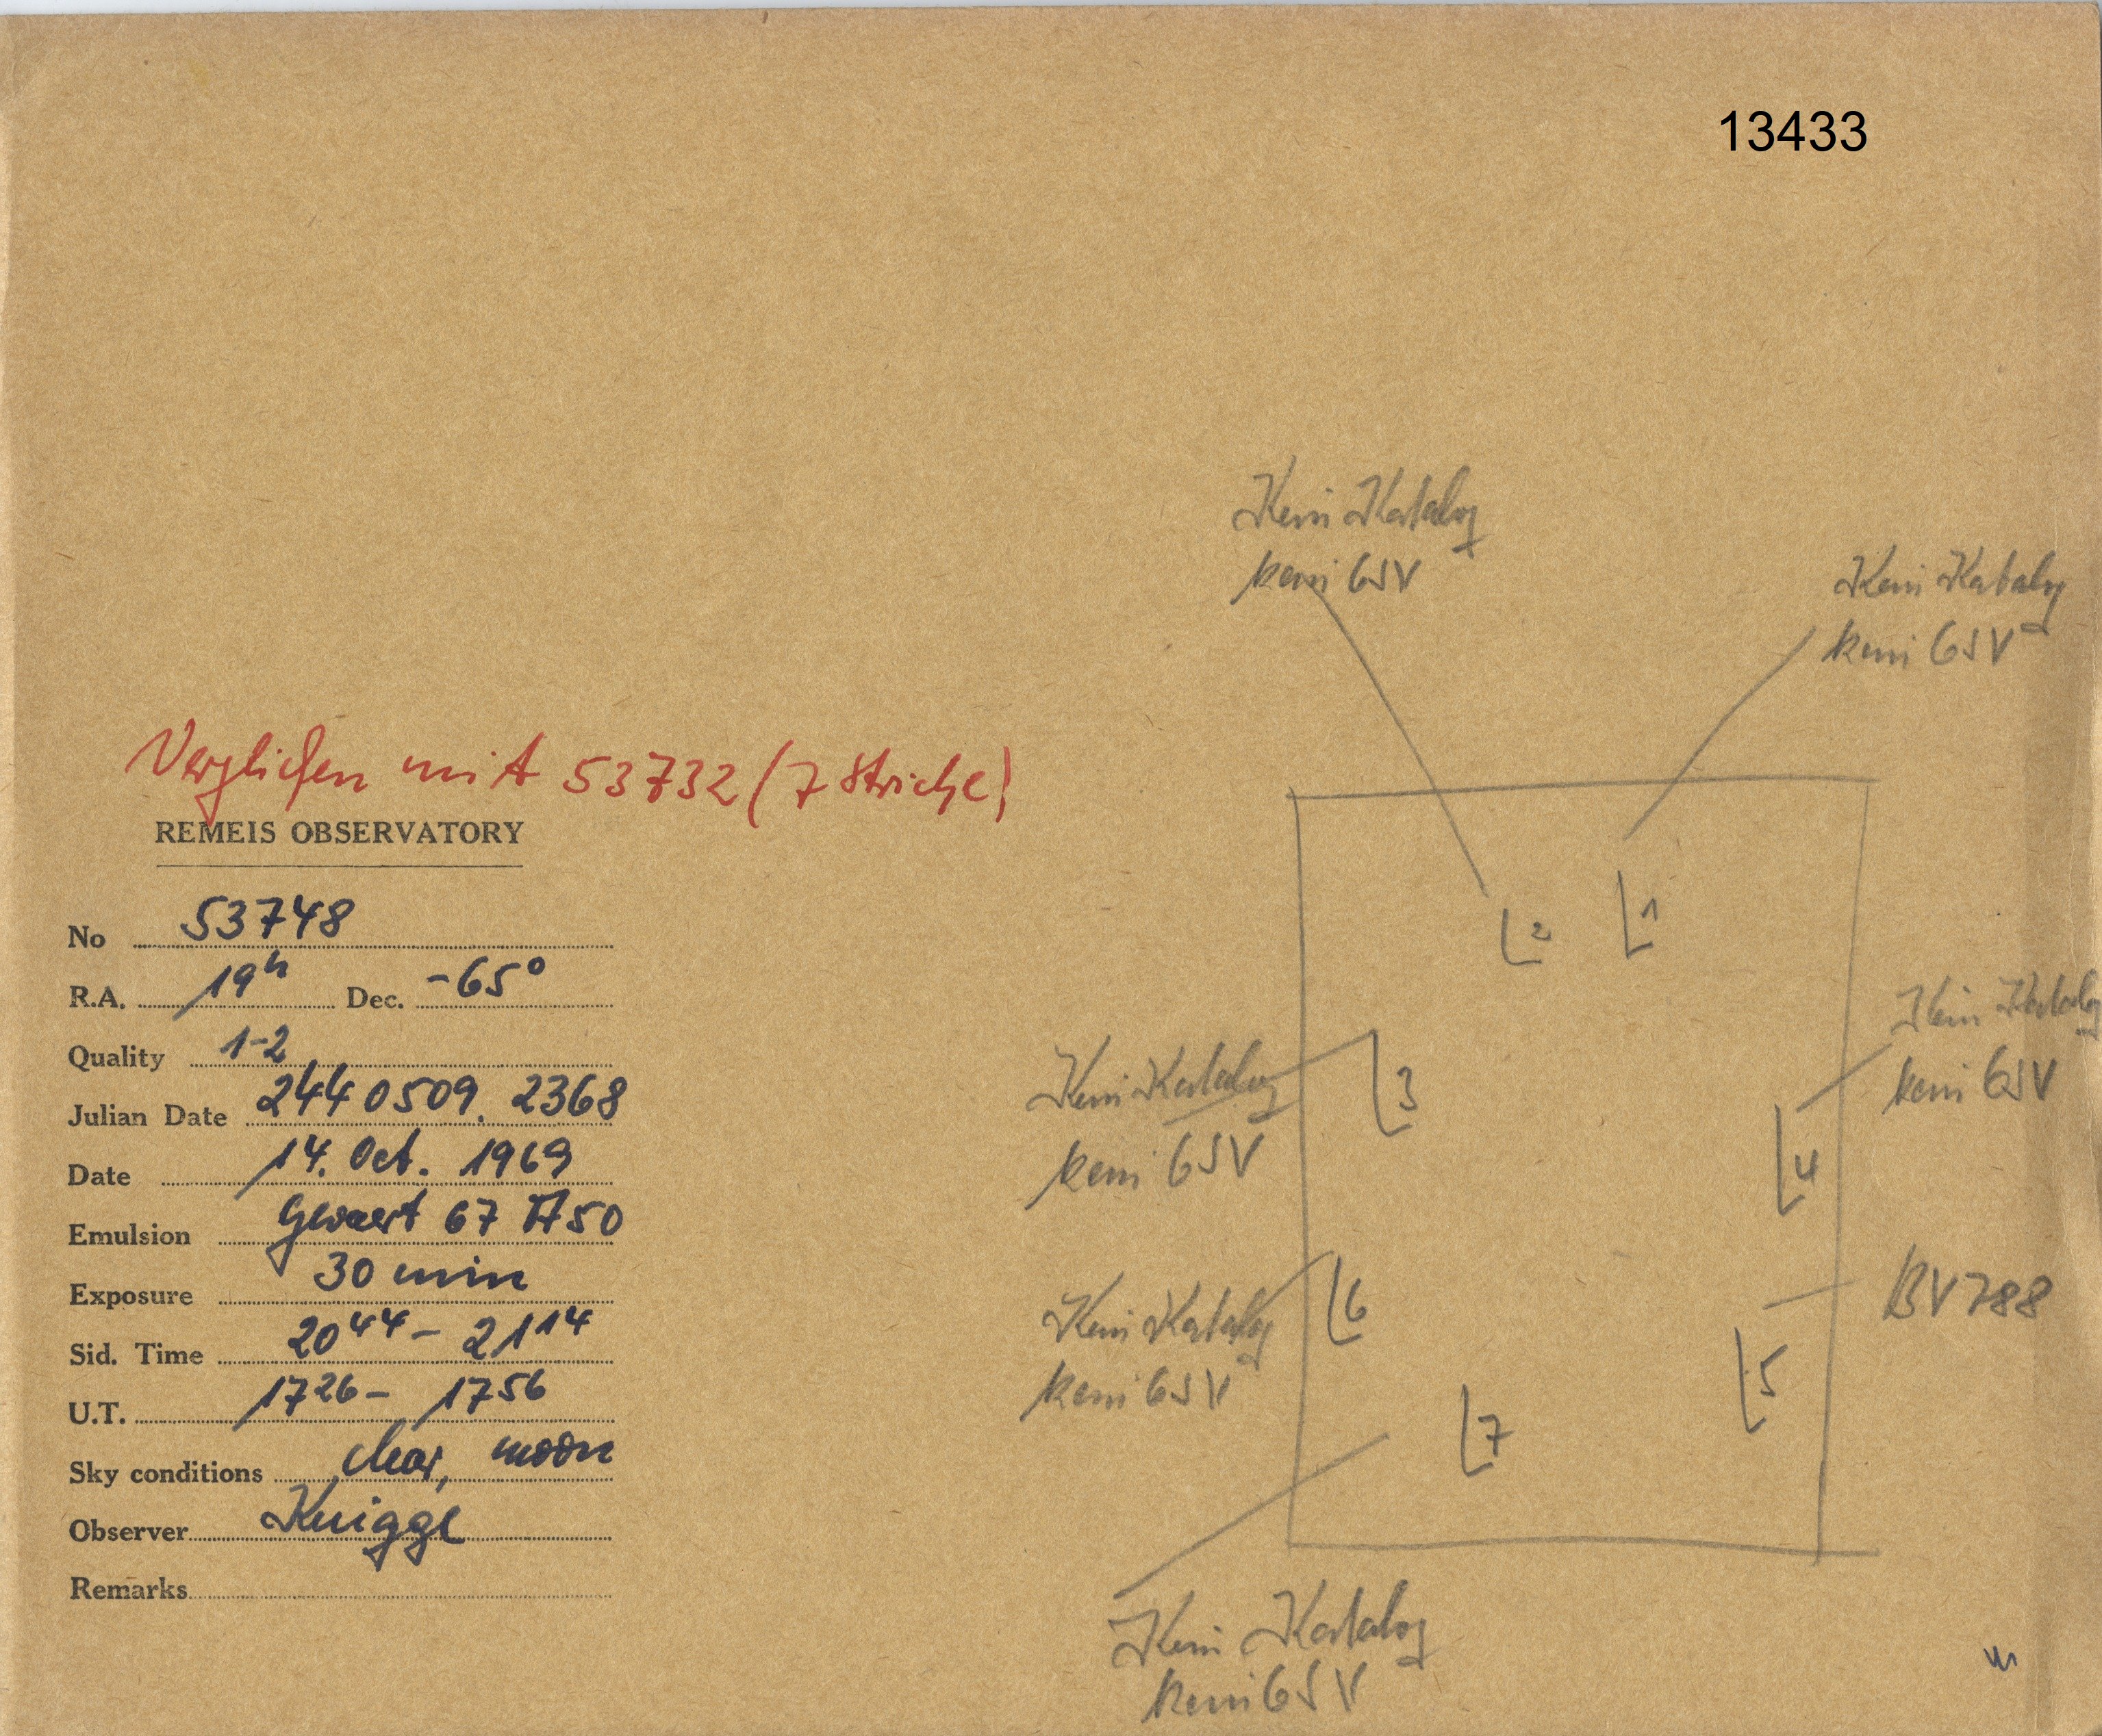 13433
Kein Katalog
kein GSV
Kein Katalog
kein GSV
Verglichen mit 53732 (7 Striche)
REMEIS OBSERVATORY
No 53748
R.A. 19h Dec. -65°
Quality 1-2
Julian Date 2440509.2368
Date 14. Oct. 1969
Emulsion Gevaert 67 A50
Exposure 30 min
Sid. Time 20 44 - 21 14
U.T. 17 26 - 17 56
Sky conditions clear, moon
Observer Knigge
Remarks
2
1
Kein Katalog
kein GSV
3
Kein Katalog
kein GSV
4
Kein Katalog
kein GSV
6
BV 788
5
7
Kein Katalog
kein GSV